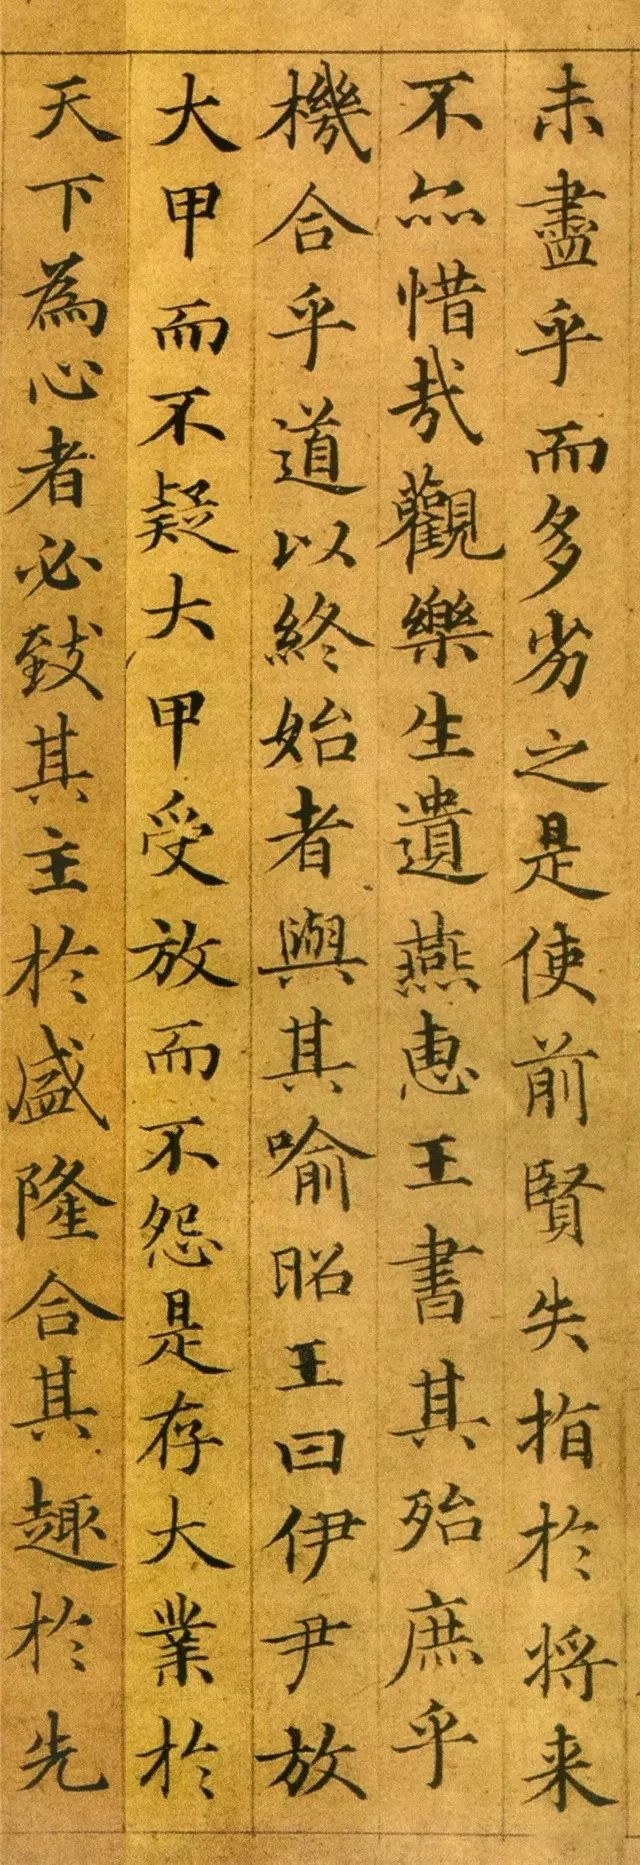 未盡乎而多劣之是使前賢失指於将来
不亦惜㢤觀樂生遺燕惠王書其殆庶乎
機合乎道以終始者與其喻昭王曰伊尹放
大甲而不疑大甲受放而不怨是存大業於
天下為心者必致其主於盛隆合其趣於先